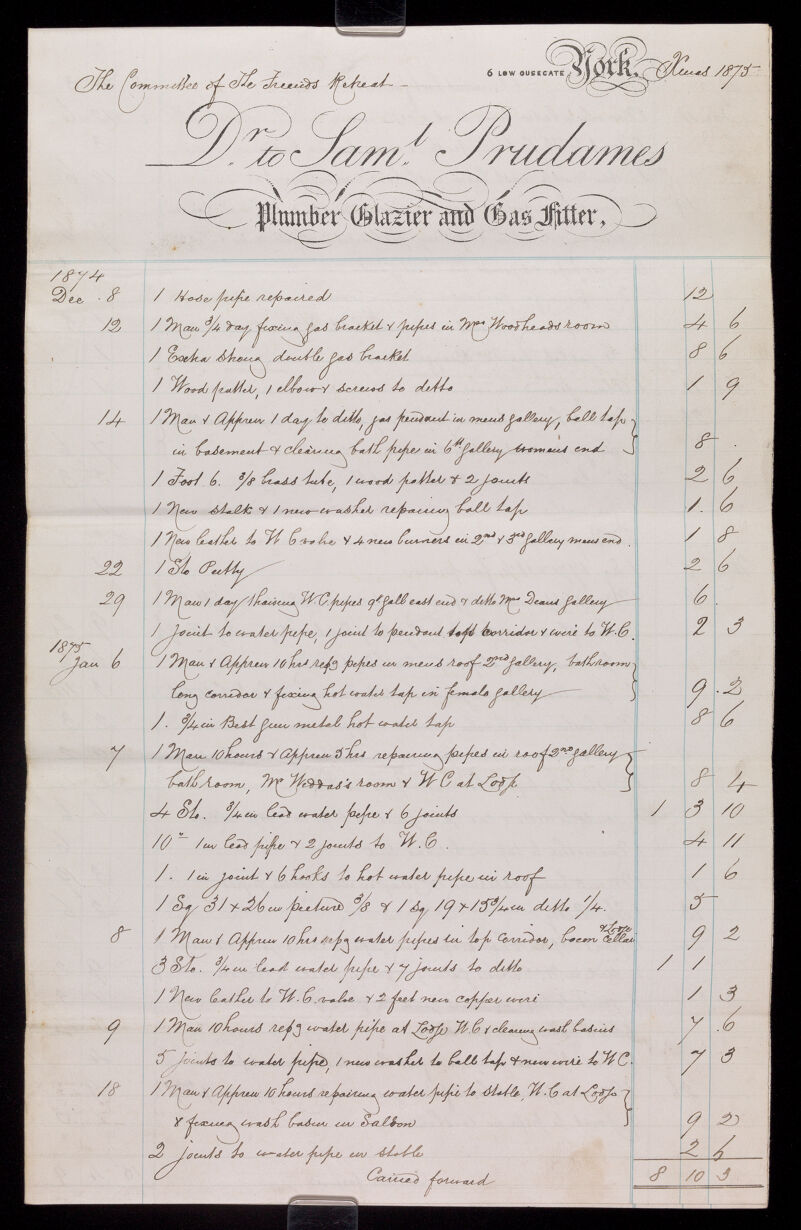 6 LOW OUSEGATE York, Xmas 1875
The Committee of The Friends Retreat
Dr. to Saml. Prudames
Plumber Glazier and Gas Fitter,
1874
Dec. 8 1 Hose pipe repaired 12
12 1 Man 3/4 day fixing gas bracket & pipes in Mrs Woodheads room 4 6
1 Extra Strong double gas bracket 8 6
1 Wood patter, 1 elbow & screws to ditto 1 9
14 1 Man & Appren 1 day to ditto, gas pendant in mens gallery, ball tap
in basement & clearing bath pipe in 6th gallery womans end 8 .
1 Foot 6. 3/8 brass tube, 1 wood patter & 2 joints 2 6
1 New stalk & 1 new washer repairing ball tap 1. 6
1 New leather to W C valve & 4 new burners in 2nd & 3rd gallery mens end. 1 8
22 1 Sto Putty 2 6
29 1 Man 1 day thawing W C pipes gt gall east end & ditto Mrs Deans gallery 6.
1 Joint to water pipe, 1 joint to pendant top corridor & wire to W.C. 2 3
1875
Jan 6 1 Man & Appren 10 hrs repg pipes in mens roof 2nd gallery, bathroom,
long corridor & fixing hot water tap in female gallery 9. 2
1. 3/4 in Best gun metal hot water tap 8 6
7 1 Man 10 hours & Appren 5 hrs repairing pipes in roof 2nd gallery
bathroom, Mr Widdas's room & W C at Lodge 8 4
4 Sto. 3/4 in lead water pipe & 6 joints 1 3 10
10" 1 in lead pipe & 2 joints to W.C. 4 11
1. 1 in joint & 6 hooks to hot water pipe in roof 1 6
1 Sq 31 x 26 in picture 3/8 & 1 sq 19 x 15 3/4 in ditto 1/4. 5
8 1 Man & Appren 10 hrs repg water pipes in top corridor, bacon Cellar & Lodge 9 2
3 Sto. 3/4 in lead water pipe & 7 joints to ditto 1 1
1 New leather to W.C. valve & 2 feet new copper wire 1 3
9 1 Man 10 hours repg water pipe at Lodge W.C & clearing wash basins 7. 6
5 joints to water pipe, 1 new washer to ball tap & new wire to W C. 7 3
18 1 Man & Appren 10 hours repairing water pipe to stable, W.C at Lodge
& fixing wash basin in Saloon 9 2
2 joints to water pipe in stable 2 6
Carried forward 8 10 3